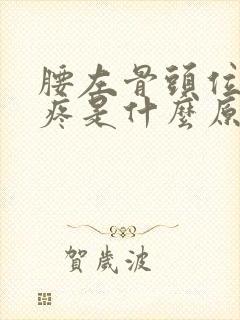 腰左骨頭位
疼是什麼原
賀歲波